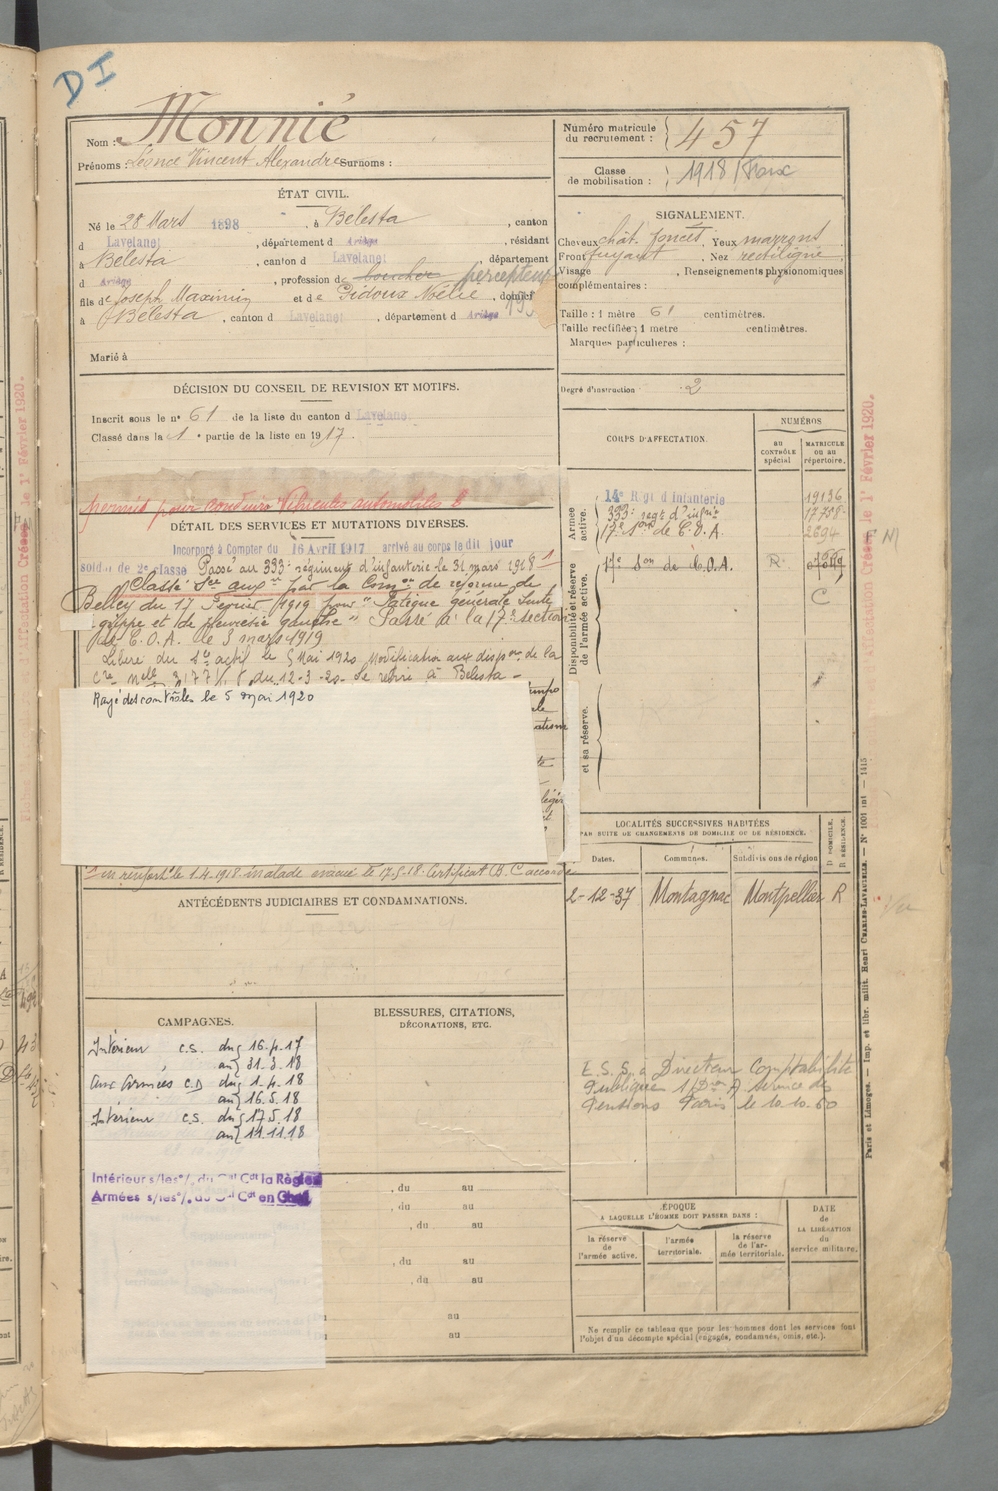 DI
Nom : Monnié
Prénoms : Léonce Vincent Alexandre Surnoms :
Numéro matricule du recrutement : 457
Classe de mobilisation : 1918
ÉTAT CIVIL.
Né le 28 Mars 1898, à Bélesta, canton
d Lavelanet, département d Ariège, résidant
à Bélesta, canton d Lavelanet, département
d Ariège, profession de boucher percepteur
fils de Joseph Maximin et de Pidoux Noélie, domicí
à Bélesta, canton d Lavelanet, département d Ariège
Marié à
SIGNALEMENT.
Cheveux chât. foncés. Yeux marrons.
Front fuyant. Nez rectiligne.
Visage , Renseignements physionomiques
complémentaires :
Taille : 1 mètre 61 centimètres.
Taille rectifiée : 1 mètre centimètres.
Marques particulières :
Degré d'instruction 2
DÉCISION DU CONSEIL DE REVISION ET MOTIFS.
Inscrit sous le n° 61 de la liste du canton d Lavelanet
Classé dans la 1e partie de la liste en 1917.
permis pour conduire Véhicules automobiles
DÉTAIL DES SERVICES ET MUTATIONS DIVERSES.
Incorporé à Compter du 16 Avril 1917 arrivé au corps le dit jour
soldat de 2e classe Passé au 333e régiment d'infanterie le 31 mars 1918 1
Classé Sce auxre par la Comon de réforme de
Belley du 17 Février 1919 pour "Fatigue générale suite
guerre et de pleurésie gauche" Passé à la 17e section
de C.O.A. le 3 mars 1919
Libéré du Sce actif le 5 Mai 1920 Modification aux dispon de la
Cre Melle 3177 1/8 du 12-3-20. Se retire à Bélesta -
Rayé des contrôles le 5 mai 1920
en renfort le 1.4.1918. malade évacué le 17.5.18. Certificat B. C accordé
ANTÉCÉDENTS JUDICIAIRES ET CONDAMNATIONS.
CORPS D'AFFECTATION.
NUMÉROS
AU CONTRÔLE spécial
MATRICULE ou au répertoire.
Armée active.
14e Régt d'Infanterie 19136
333e regt d'infrie 17758
17e Son de C.O.A. 2694
Disponibilité et réserve de l'armée active.
17e Son de C.O.A. R.
C
et sa réserve.
LOCALITÉS SUCCESSIVES HABITÉES
PAR SUITE DE CHANGEMENTS DE DOMICILE OU DE RÉSIDENCE.
Dates.
Communes.
Subdivisions de région
D DOMICILE.
R RÉSIDENCE.
2-12-37 Montagnac Montpellier R
E.S.S. à Directeur Comptabilité
Publique Service des
Pensions Paris le 10.10.60
CAMPAGNES.
Intérieur c.s. du 16.4.17
au 31.3.18
aux armées C.D du 1.4.18
au 16.5.18
Intérieur c.s. du 17.5.18
au 11.11.18
Intérieur s/les o/. du Gal Cdt la Région
Armées s/les o/. du Gal Cdt en Chef
BLESSURES, CITATIONS,
DÉCORATIONS, ETC.
, du au
, du au
, du au
, du au
, du au
au
au
ÉPOQUE
A LAQUELLE L'HOMME DOIT PASSER DANS :
la réserve de l'armée active.
l'armée territoriale.
la réserve de l'armée territoriale.
DATE de LA LIBÉRATION du service militaire.
Ne remplir ce tableau que pour les hommes dont les services font
l'objet d'un décompte spécial (engagés, condamnés, omis, etc.).
Paris et Limoges. — Imp. et libr. milit. Henri CHARLES-LAVAUZELLE. — N° 1001 int — 1415
le 1er Février 1920.